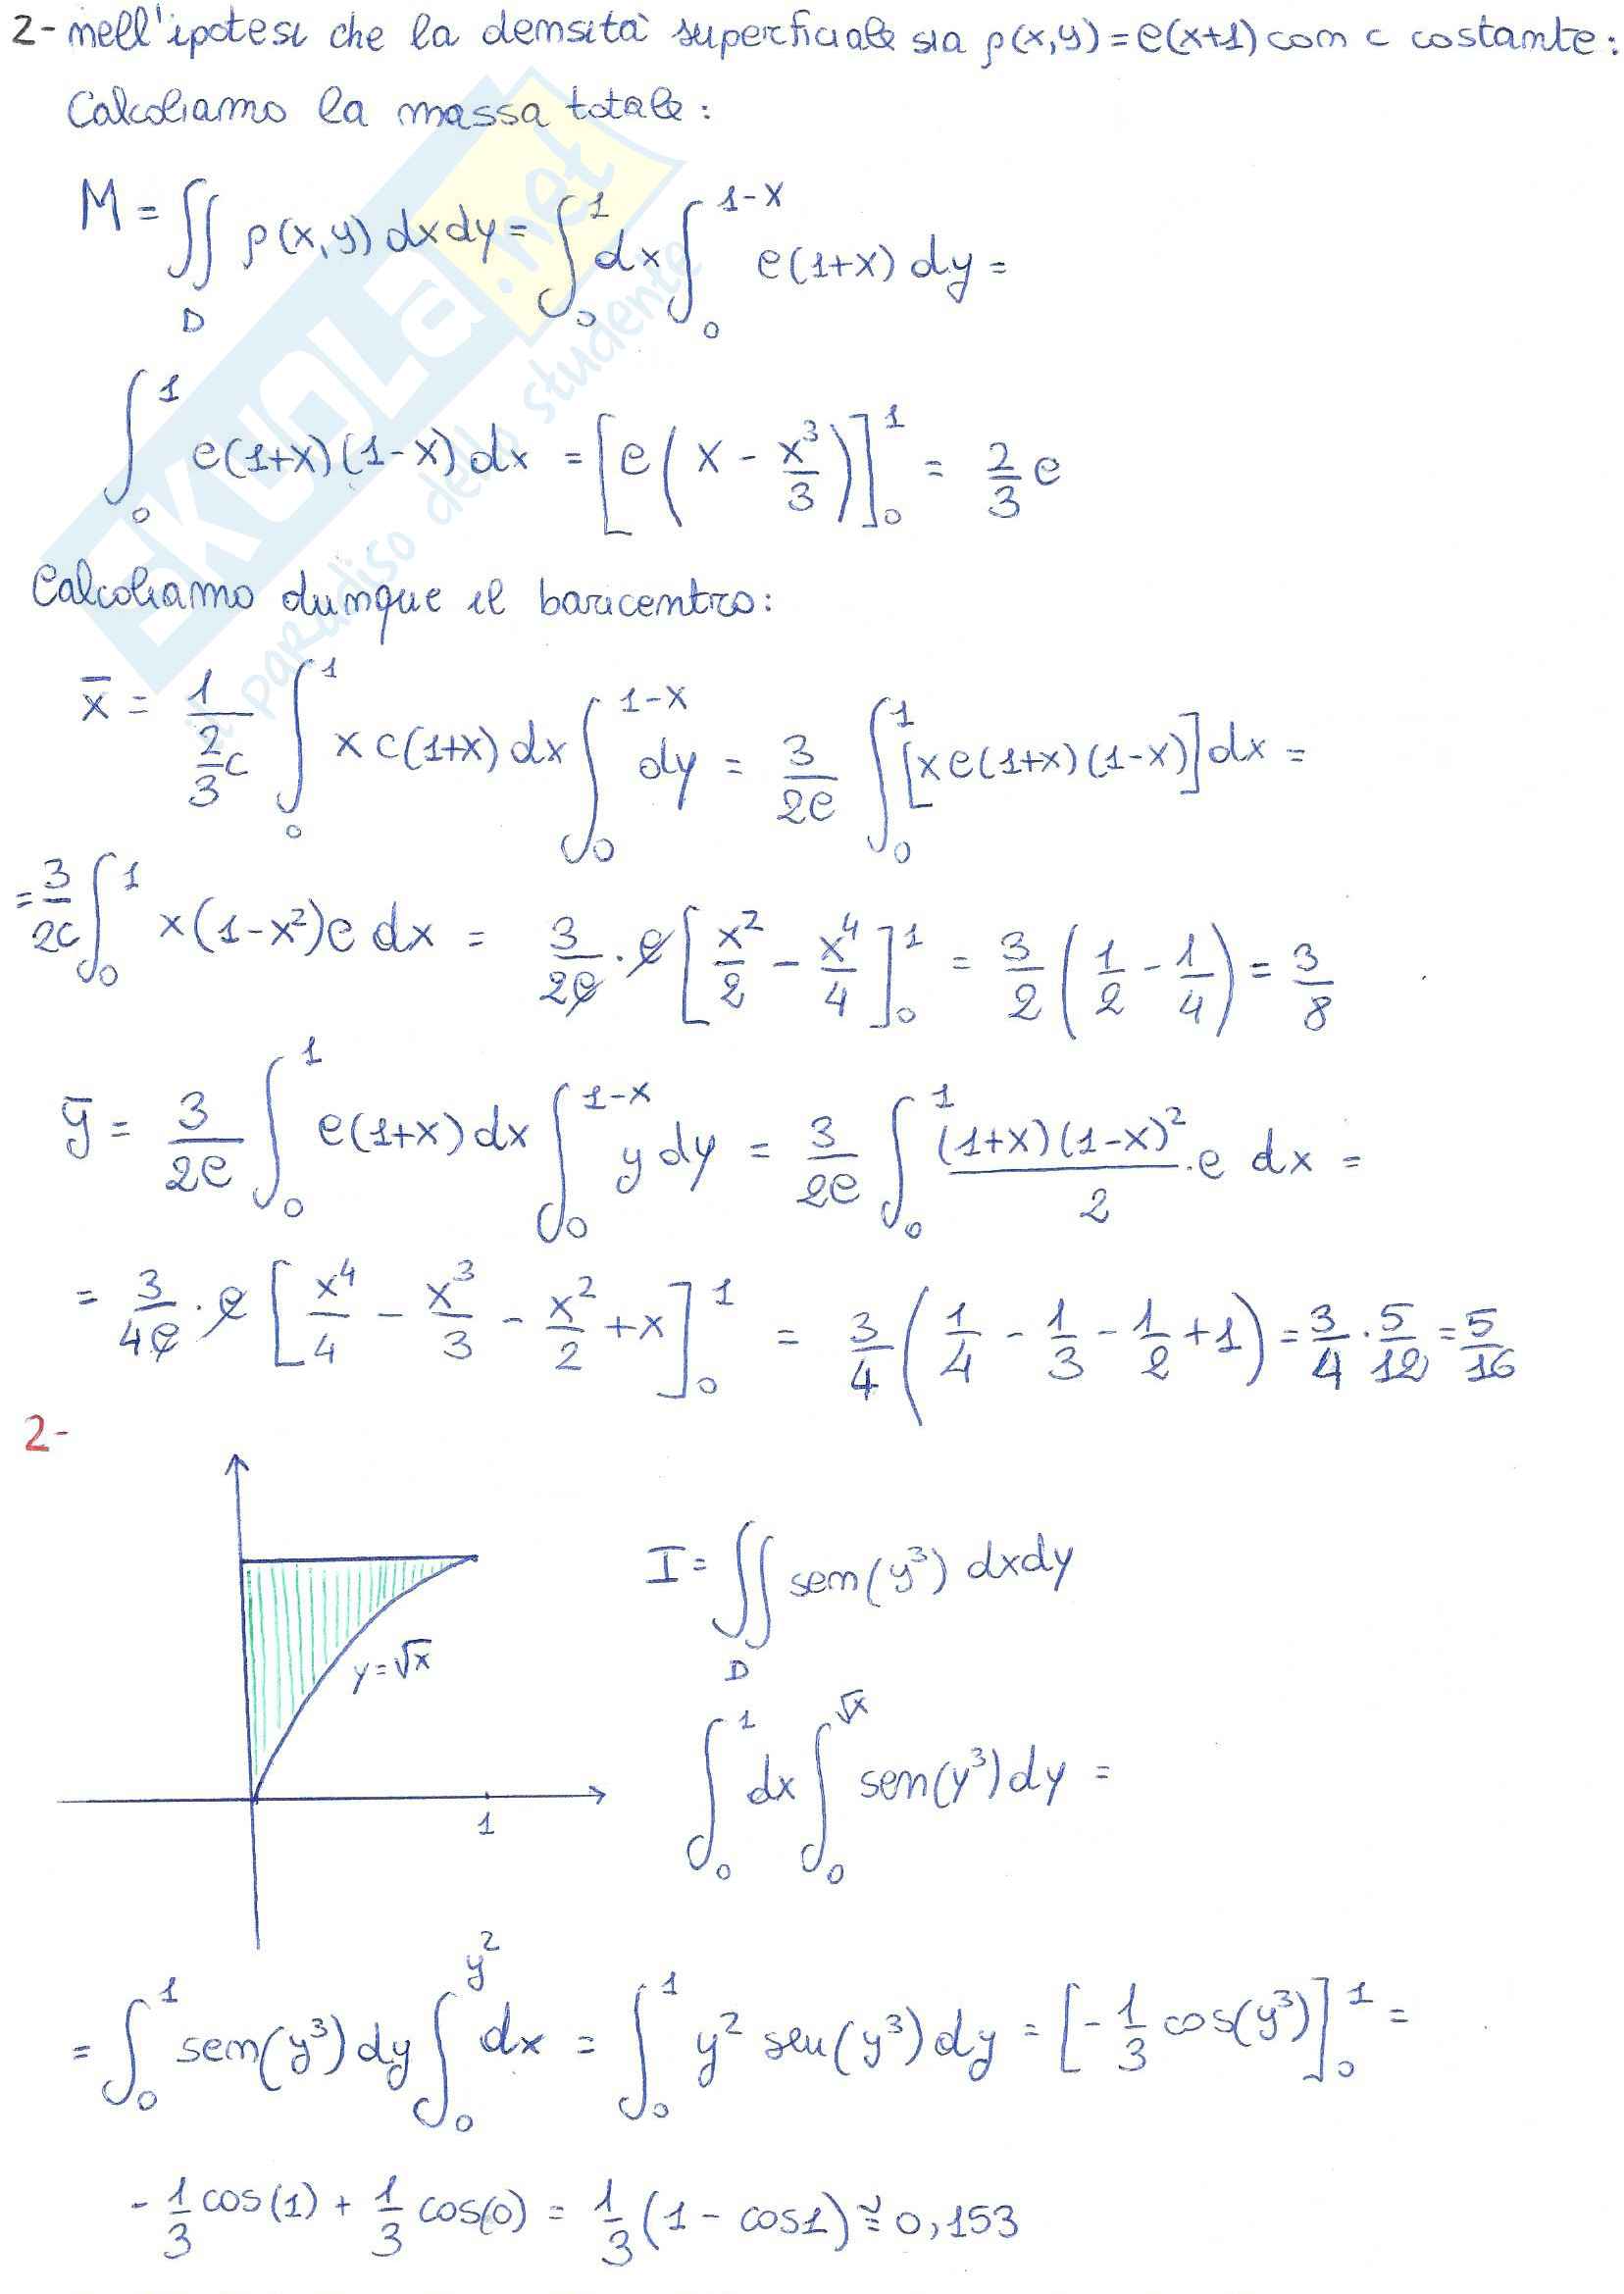 2- nell'ipotesi che la densità superficiale sia ρ(x,y) = c(x+1) con c costante:
Calcoliamo la massa totale:
M = ∬_D ρ(x,y) dxdy = ∫_0^1 dx ∫_0^{1-x} c(1+x) dy =
∫_0^1 c(1+x)(1-x) dx = [c(x - x³/3)]_0^1 = 2/3 c
Calcoliamo dunque il baricentro:
x̄ = 1/(2/3 c) ∫_0^1 x c(1+x) dx ∫_0^{1-x} dy = 3/2c ∫_0^1 [x c(1+x)(1-x)] dx =
= 3/2c ∫_0^1 x(1-x²)c dx = 3/2c · c [x²/2 - x⁴/4]_0^1 = 3/2 (1/2 - 1/4) = 3/8
ȳ = 3/2c ∫_0^1 c(1+x) dx ∫_0^{1-x} y dy = 3/2c ∫_0^1 (1+x)(1-x)²/2 · c dx =
= 3/4c · c [x⁴/4 - x³/3 - x²/2 + x]_0^1 = 3/4 (1/4 - 1/3 - 1/2 + 1) = 3/4 · 5/12 = 5/16
2-
I = ∬_D sen(y³) dxdy
y = √x
∫_0^1 dx ∫_0^{√x} sen(y³) dy =
1
= ∫_0^1 sen(y³) dy ∫_0^{y²} dx = ∫_0^1 y² sen(y³) dy = [-1/3 cos(y³)]_0^1 =
- 1/3 cos(1) + 1/3 cos(0) = 1/3 (1 - cos1) ≅ 0,153
SKUOLA.net
il paradiso dello studente